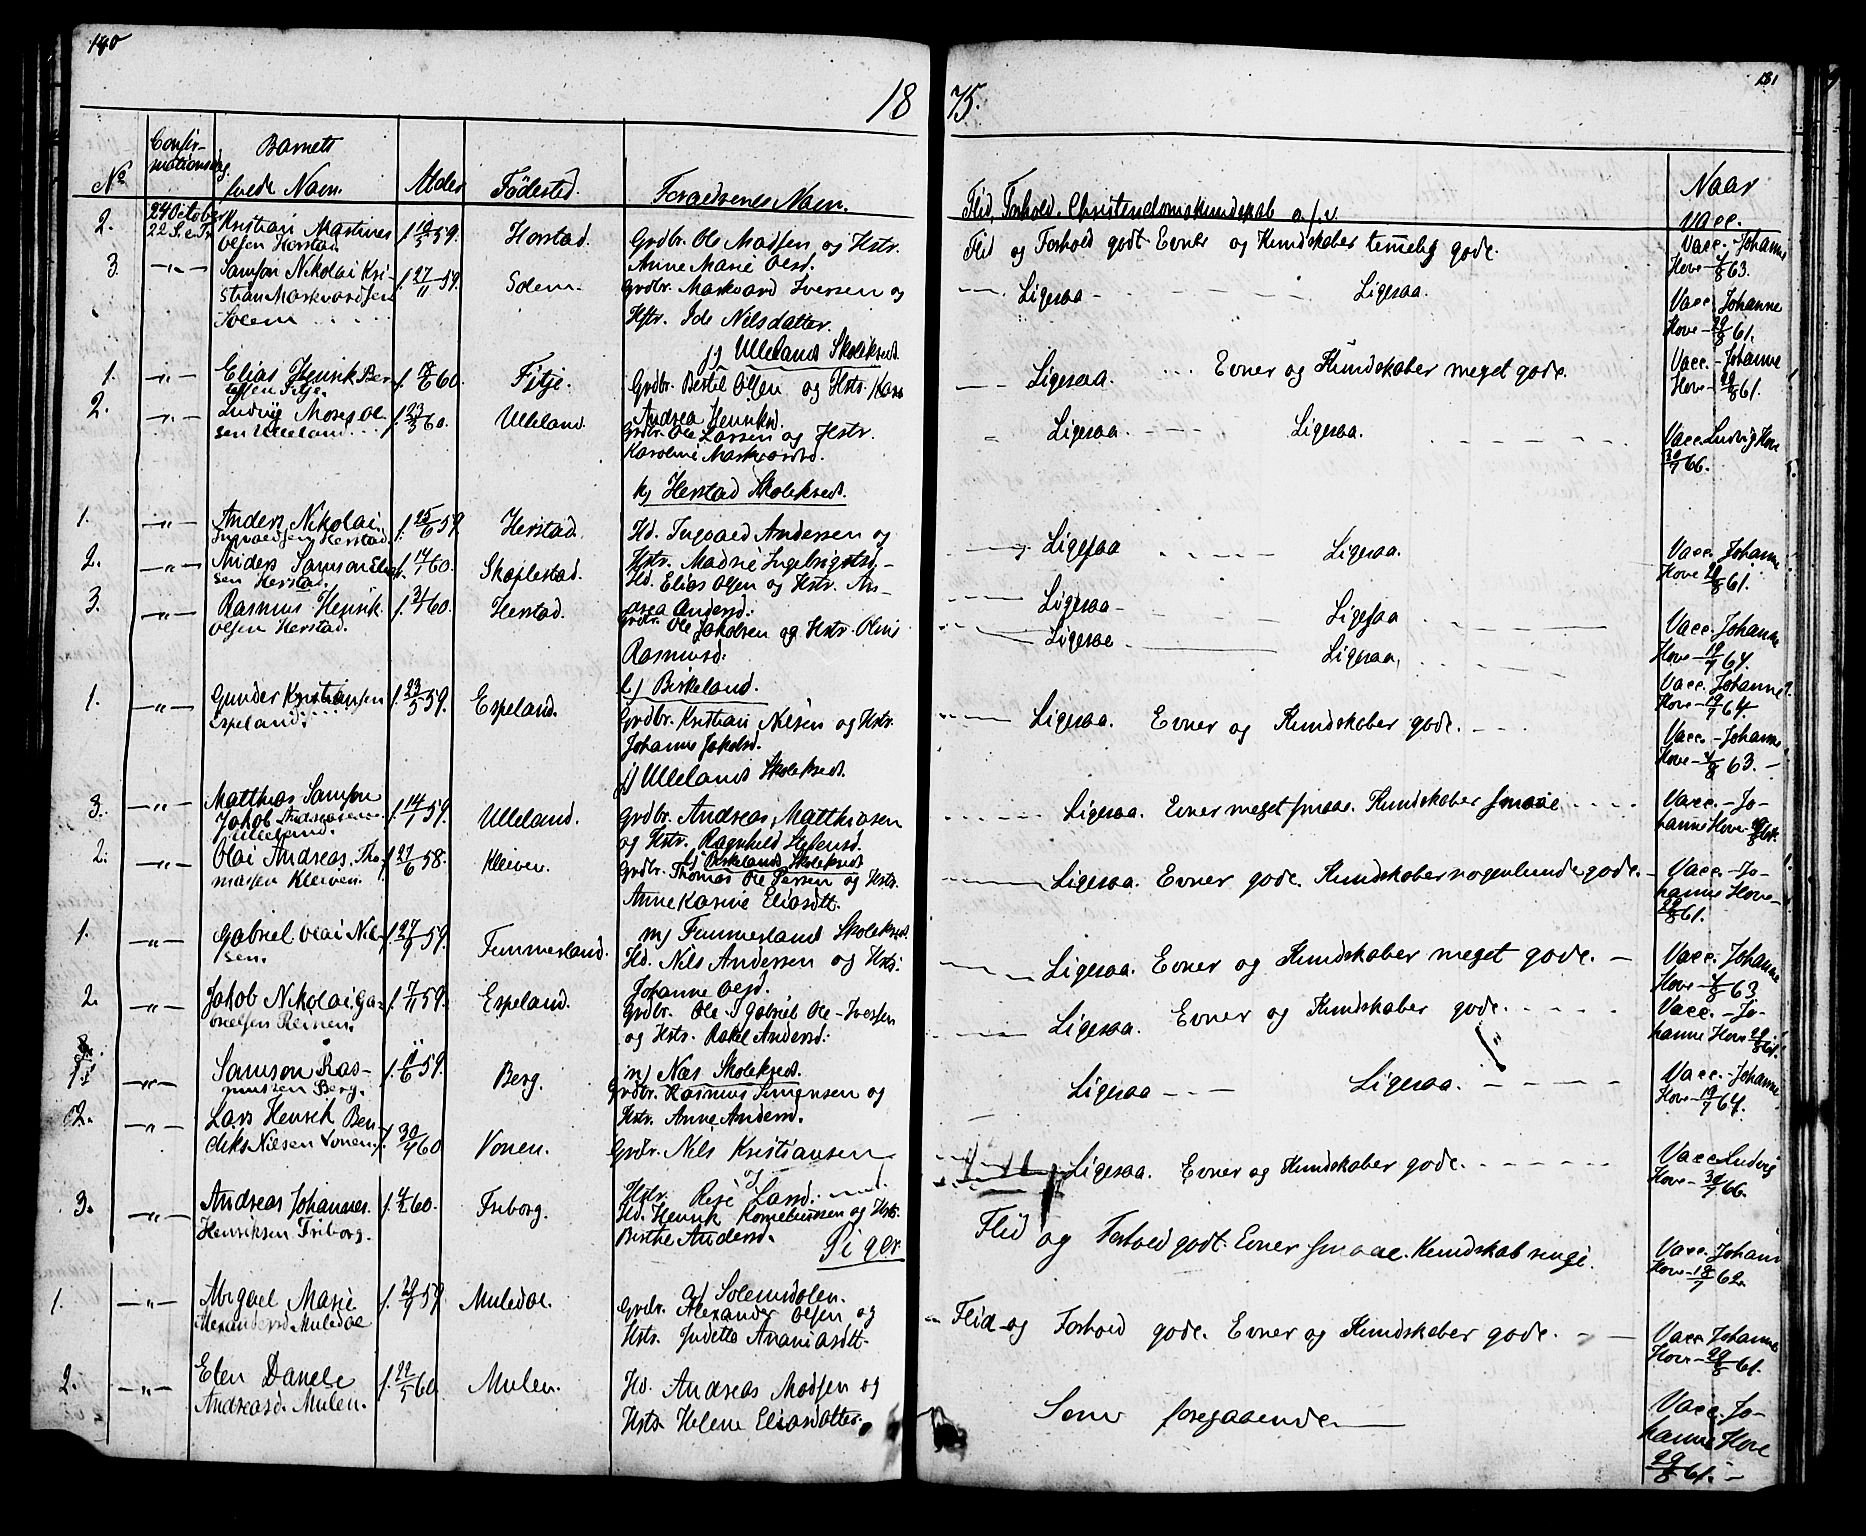 180
181
18 75.
No
Confir-
mationsdag.
Barnets
fulde Navn.
Alder
Fødested.
Foraeldrenes Navn.
Flid, Forhold, Christendomskundskab o. s. v.
Naar
Vacc.
2.
24 October
22 S. e. Tr.
Kristian Martines
Olsen Herstad.
f. 12/5 59.
Horstad.
Grdbr. Ole Madsen og Hstr.
Anne Marie Olsd.
Flid og Forhold godt. Evner og Kundskaber temmelig gode.
Vacc. Johanne
Hove 4/8 63.
3.
-"-
Samson Nikolai Kri-
stian Markvardsen
Solem
f. 27/11 59.
Solem.
Grdbr. Markvard Iversen og
Hstr. Ide Nilsdatter.
Ligesaa - Ligesaa.
Vacc. Johanne
Hove - 29/8 61.
j) Ullelands Skolekreds.
1.
-"-
Elias Henrik Ber-
telsen Fitje.
f. 18/6 60.
Fitje.
Grdbr. Bertel Olsen og Hstr. Karen
Andrea Henriksd.
Ligesaa. Evner og Kundskaber meget gode.
Vacc. - Johanne
Hove - 29/8 61.
2.
-"-
Ludvig Moses Ol-
sen Ulleland.
f. 23/3 60.
Ulleland.
Grdbr. Ole Larsen og Hstr.
Karoline Markvardsd.
Ligesaa. Ligesaa.
Vacc. Ludvig Hove
30/7 66.
k) Herstad Skolekreds.
1.
-"-
Anders Nikolai
Ingvaldsen Herstad.
f. 25/6 59
Herstad.
Hd. Ingvald Andersen og
Hstr. Madsie Ingebrigtsd. -
Ligesaa Ligesaa.
Vacc. Johanne
Hove 29/8 61.
2.
-"-
Anders Samson Elias-
sen Herstad.
f. 14/1 60.
Skaplestad.
Hd. Elias Olsen og Hstr. An-
drea Andersd.
Ligesaa - Ligesaa
Vacc. Johanne
Hove - 19/7 64.
3.
-"-
Rasmus Henrik
Olsen Herstad.
f. 3/4 60.
Herstad.
Grdbr. Ole Jakobsen og Hstr. Oline
Rasmusd.
Ligesaa Ligesaa.
Vacc. Johanne
Hove - 19/7 64.
l) Birkeland.
1.
-"-
Gunder Kristiansen
Espeland.
f. 23/5 59.
Espeland.
Grdbr. Kristian Nilsen og Hstr.
Johanne Jakobsd.
Ligesaa. Evner og Kundskaber gode.
Vacc. - Johanne
Hove - 4/8 63. -
j) Ullelands Skolekreds.
3.
-"-
Matthias Samson
Jakob Andreassen
Ulleland.
f. 14/1 59.
Ulleland.
Grdbr. Andreas Matthiasen
og Hstr. Ragnhild Stefensd.
Ligesaa. Evner meget smaae. Kundskaber smaae
Vacc. - Jo-
hanne Hove 29/8 61.
l) Birkelands Skolekreds
2.
-"-
Olai Andreas Tho-
massen Kleiven.
f. 27/6 58.
Kleiven.
Grdbr. Thomas Ole Persen og Hstr.
Anne Karine Eliasdtt.
Ligesaa. Evner gode. Kundskaber nogenlunde gode. -
Vacc. - Jo-
hanne Hove -
29/8 61.
m) Fimmerland Skolekreds.
1.
-"-
Gabriel Olai Nil-
sen.
f. 27/9 59.
Femmerland.
Hd. Nils Andersen og Hstr.
Johanne Olsd.
Ligesaa. Evner og Kundskaber meget gode. -
Vacc. Johanne
Hove - 4/8 63
2.
-"-
Jakob Nikolai Ga-
brielsen Reinen.
f. 7/11 59.
Espeland.
Grdbr. Ole Gabriel Ole - Iversen
og Hstr. Rakel Andersd.
Ligesaa. Evner og Kundskaber gode.
Vacc. - Jo-
hanne Hove 29/8 61.
n) Næs Skolekreds.
1.
-"-
Samson Ras-
mussen Berg.
f. 11/6 59.
Berg.
Grdbr. Rasmus Simonsen og
Hstr. Anne Andersd.
Ligesaa - Ligesaa.
Vacc. - Johanne
Hove - 19/7 64.
2.
-"-
Lars Henrik Ben-
diks Nilsen Vonen.
f. 30/4 60
Vonen.
Grdbr. Nils Kristiansen
og
Hstr. Rise Larsd.
Ligesaa. Evner og Kundskaber gode.
Vacc Ludvig
Hove - 30/7 66.
3.
-"-
Andreas Johannes
Henriksen Friborg.
f. 4/2 60.
Friborg.
Hd. Henrik Korneliussen og Hstr.
Birthe Andersd.
Flid og Forhold godt. Evner smaae. Kundskab ringe.
Vacc. Johanne
Hove - 18/7 62.
Piger
a) Solemsdalen.
1.
-"-
Abigael Marie
Alexandersd. Muledal
f. 29/9 59
Muledal.
Grdbr. Alexander Olsen og
Hstr. Judette Ananiasdtt.
Flid og Forhold gode. Evner og Kundskaber gode.
Vacc Johanne
Hove - 29/8 61.
2.
-"-
Elen Danele
Andreasd. Mulen.
f. 22/5 60
Mulen.
Hd. Andreas Madsen og
Hstr Helene Eliasdatter.
Som foregaaende
Vacc. Jo-
hanne Hove
29/8 61. -